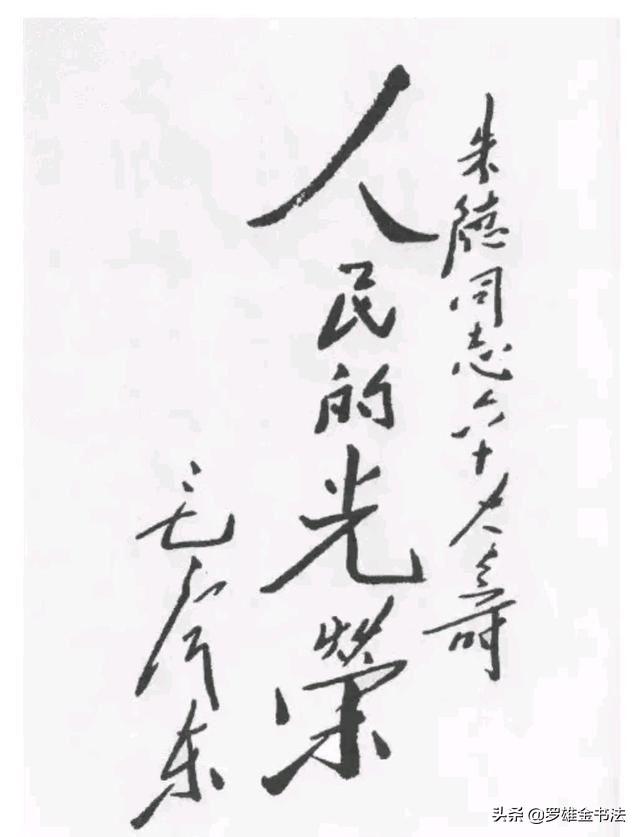 朱德同志六十大寿
人民的光榮
毛泽东
头条 @罗雄金书法